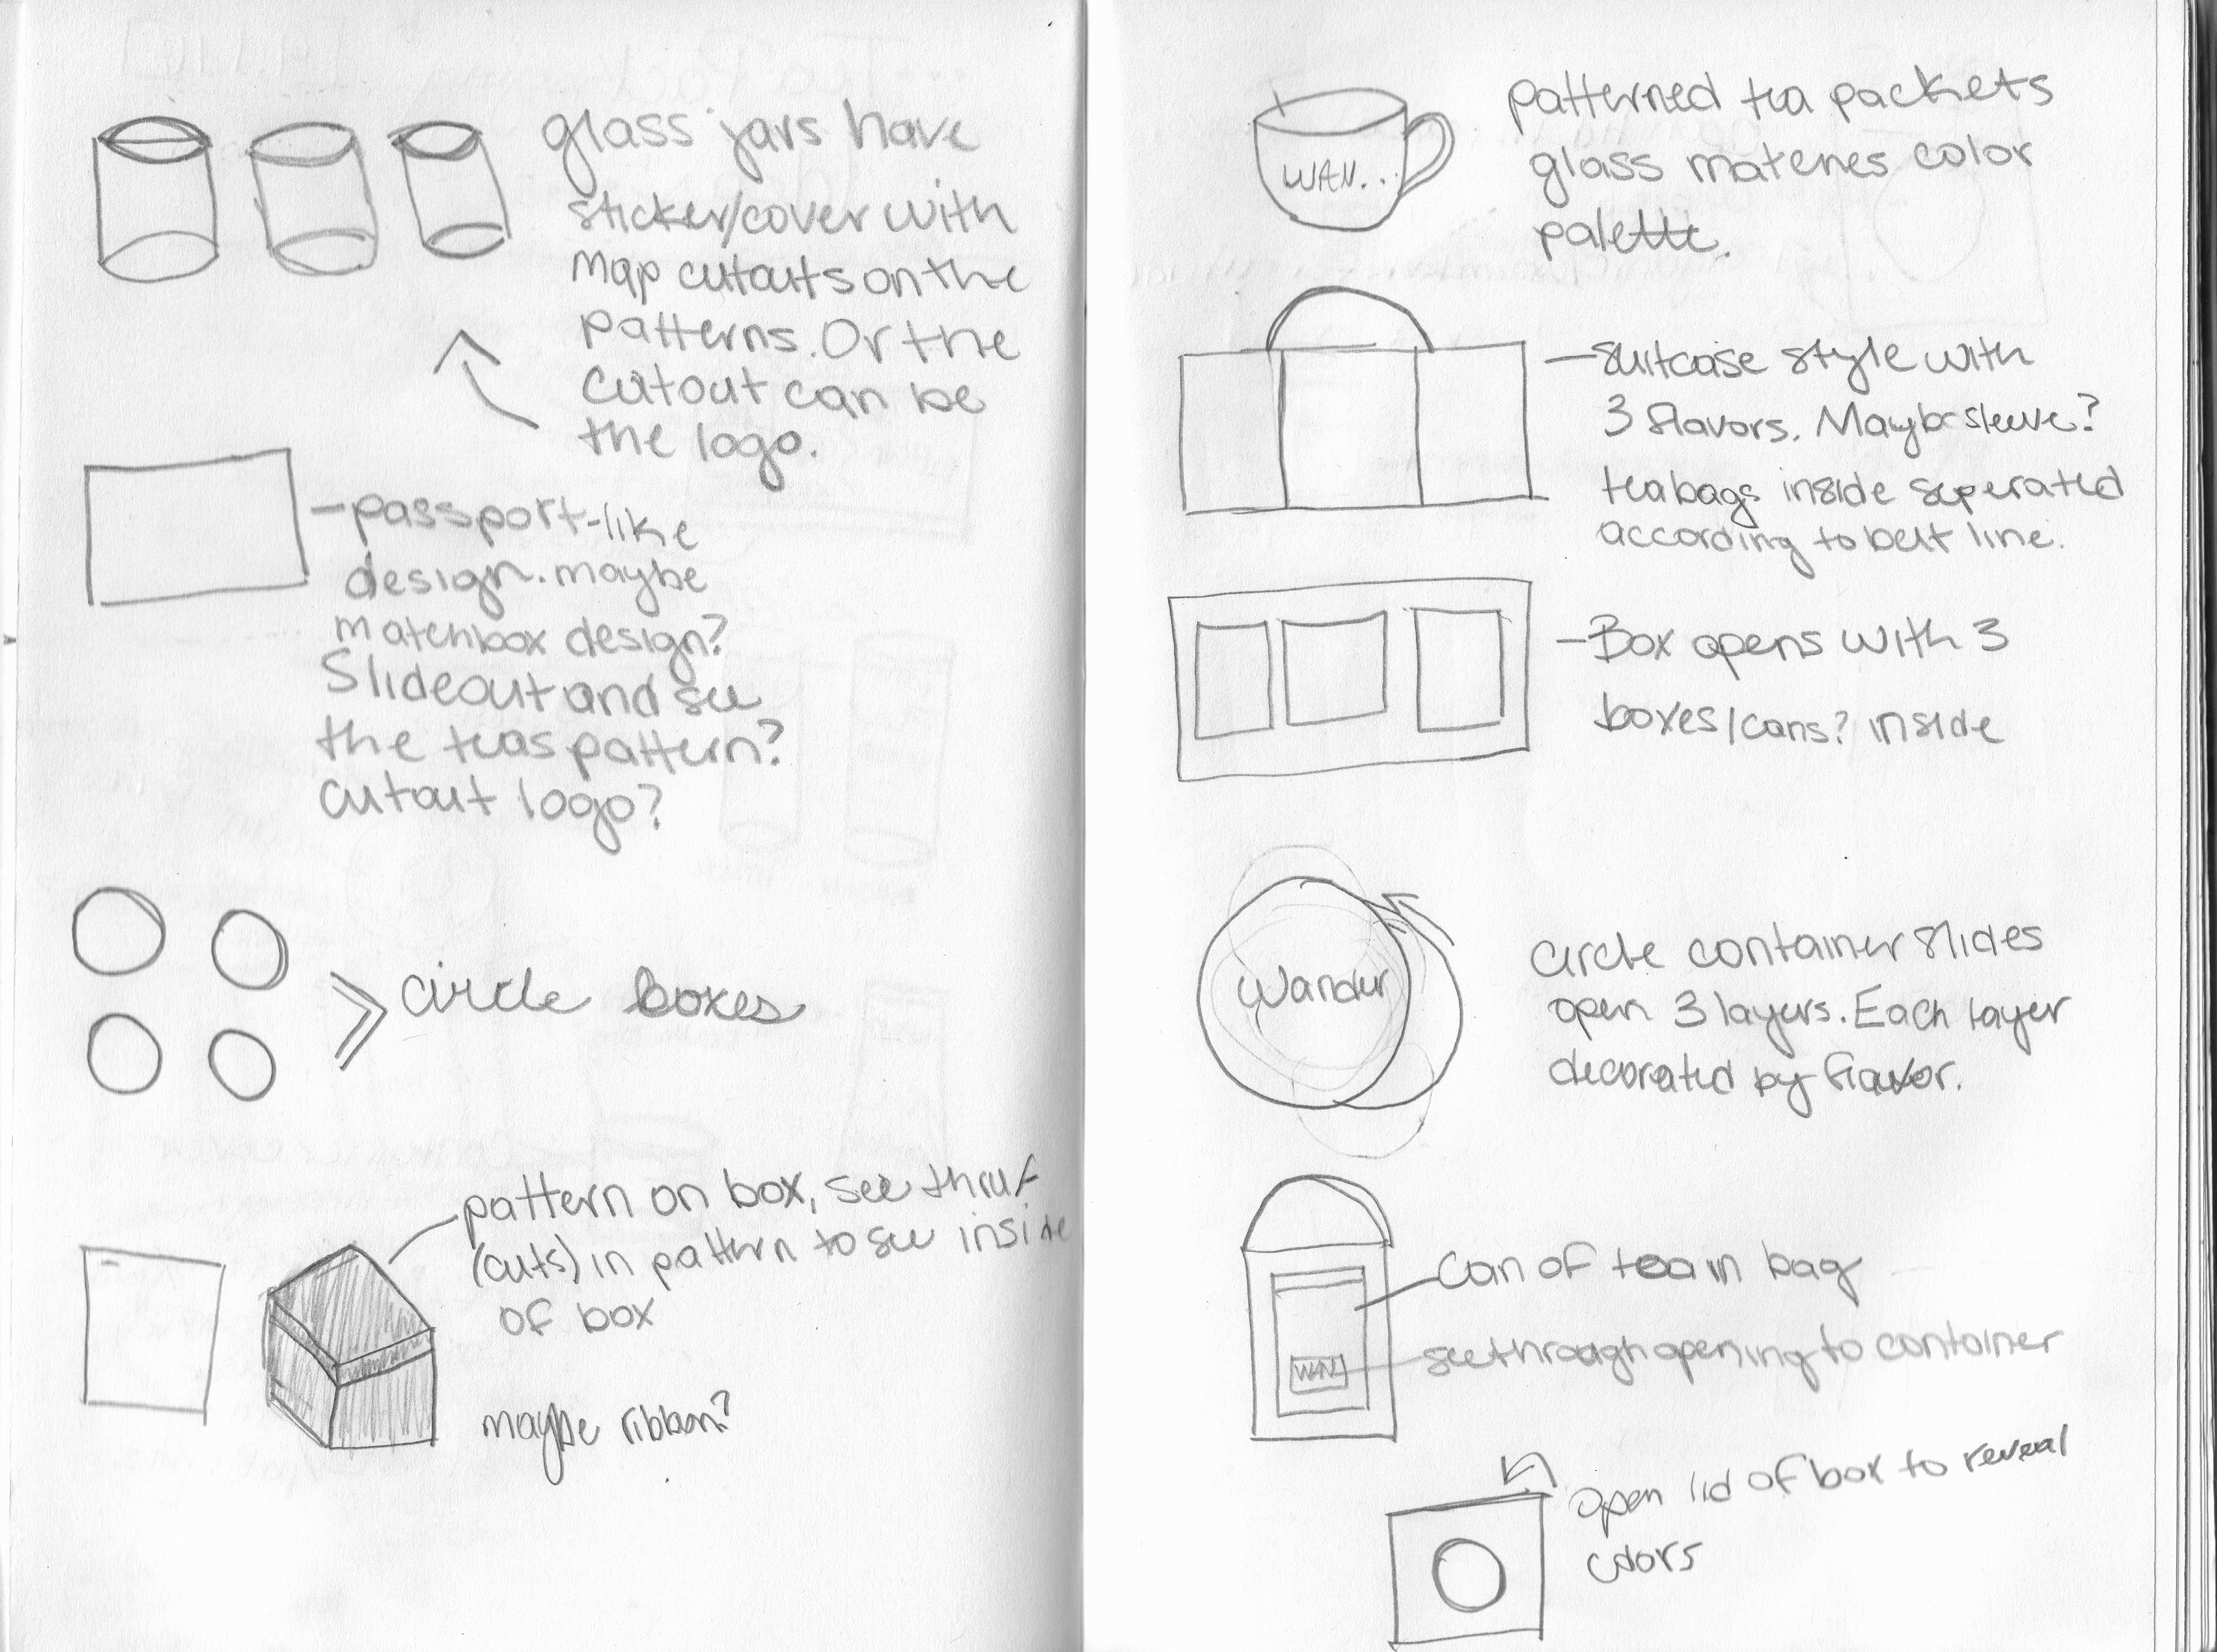 glass jars have
sticker/cover with
map cutouts on the
patterns. Or the
cutout can be
the logo.
-passport-like
design. maybe
matchbox design?
Slideout and see
the teas pattern?
cutout logo?
circle boxes
pattern on box, see thru
(cuts) in pattern to see inside
of box
maybe ribbon?
WAN...
patterned tea packets
glass matches color
palette.
-suitcase style with
3 flavors. Maybe sleeve?
teabags inside seperated
according to belt line.
-Box opens with 3
boxes/cans? inside
Wander
circle container slides
open 3 layers. Each layer
decorated by flavor.
can of tea in bag
WAN
see through opening to container
open lid of box to reveal
colors